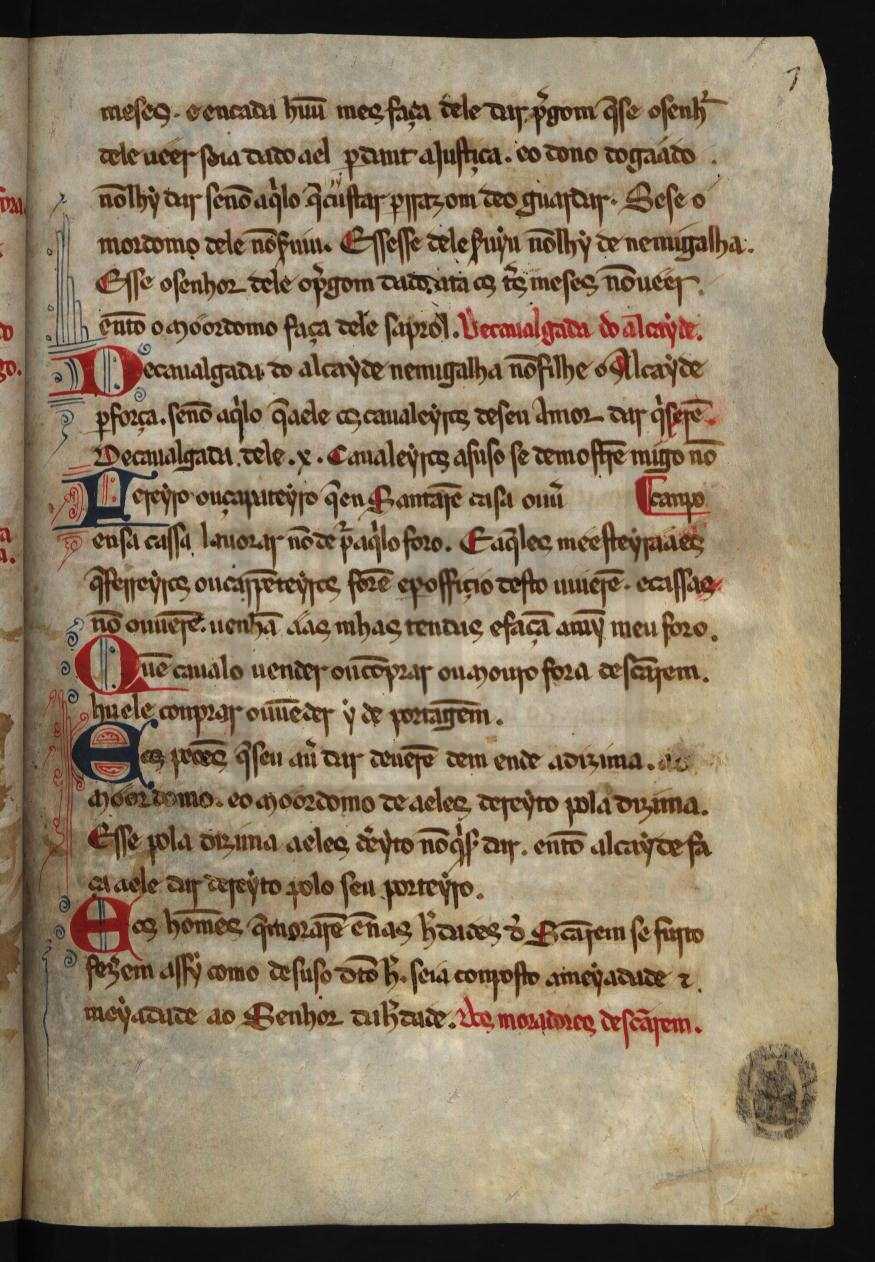 7
meses. e en cada hũu mes faça dele dar p̃gom q̃ se o senhr̃
dele ueer seia dado a el p̱dante a Justiça. e o dono do gaado
nõ lhy dar senõ aq̃lo q̃ custar per razom de o guardar. E se o
mordomo dele nõ s̃uiu. E sse sse dele s̃uyu nõ lhy de nemigalha.
E sse o senhor dele o p̃gom dado ata os t̃s meses nõ ueer.
entõ o moordomo faça dele sa prol. De caualgada do alcayde.
De caualgada do alcayde nemigalha nõ filhe o Alcayde
p̱ força. senõ aq̃lo q̃ a ele os caualeyros de seu Amor dar q̃serẽ.
De caualgada dele .x. Caualeyros a suso se demostrẽ migo nõ
Fereyro ou çapateyro q̃ en Santarẽ casa ouũ
en sa cassa laurar nõ de p̃ aq̃lo foro. E aq̃les meesteyraaes
q̃ ferreyros ou carpẽteyros forẽ e p̱ offiçio desto uiuerẽ. e cassas
nõ ouuerẽ. uenhã aas mhas tendas e façã a mỹ meu foro.
Quẽ caualo uender ou cõprar ou mouro fora de sc̃arem.
hu ele conprar ou uẽder y de portagẽm.
E os peões q̃ seu auũ dar deuerẽ dem ende a dizima. ao
moordomo. e o moordomo de a eles dereyto pola dizima.
E sse pola dizima a eles deỹto nõ q̃s̃ dar. entõ alcayde fa
ça a ele dar dereyto polo seu porteyro.
E os homẽes q̃ morarẽ ẽ nas h̃dades d̃ Sc̃arem se furto
fez̃em assy como de suso dto h̃. seia conposto a meyadade ⁊.
meyadade ao Senhor da h̃dade. Dos moradores de sc̃arem.